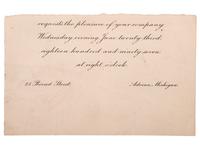 requests the pleasure of your company
Wednesday evening June twenty-third
eighteen hundred and ninety-seven
at eight o'clock.
Broad Street. Adrian, Michigan.